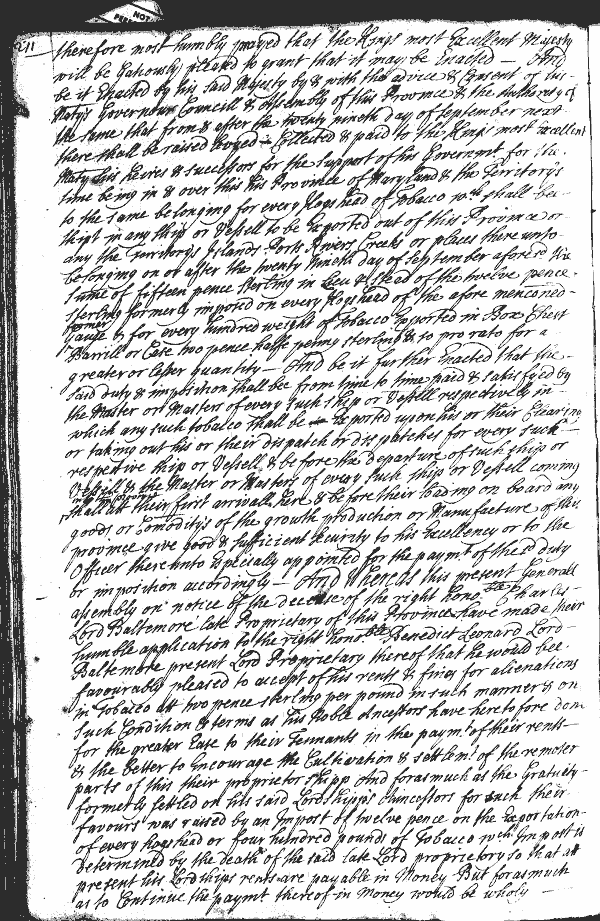 211
therefore most humbly prayed that the Kings most Excellent Majesty
will be Gatiously pleased to grant that it may be Enacted — And
be it Enacted by his said Majesty by & with the advice & Consent of his
Matys Governour Councill & Assembly of this Province & the Authority of
the same that from & after the twenty nineth day of september next
there shall be raised Collected & paid to the Kings most Excellent
Maty his heires & successors for the support of his Governmt for the
time being in & over this his Province of Maryland & the Territorys
to the same belonging for every Hogshead of Tobacco wch shall be
shipt in any ship or Vessell to be Exported out of this Province or
any the Territorys Islands Ports Rivers Creeks or places there unto
belonging on or after the twenty nineth day of September aforesd the
sume of fifteen pence sterling in Lieu & stead of the twelve pence
sterling formerly imposed on every Hogshead of the afore menconed
former
gauge & for every hundred weight of Tobacco Exported in Box Chest
Barrill or Case two pence halfe penny sterling & so pro rato for a
greater or lesser quantity — And be it further Enacted that the
said duty & imposition shall be from time to time paid & satisfyed by
the Master or Masters of every such ship or Vessell respectively in
which any such Tobacco shall be Exported upon his or their Clearing
or taking out his or their dispatch or dispatches for every such
respective ship or Vessell & before the departure of such ship or
Vessell & the Master or Masters of every such ship or Vessell coming
shall att their first arrivall here & before their loading on board any
goods or Comoditys of the growth production or Manufacture of this
province give good & sufficient security to his Excellency or to the
Officer there unto Especially appointed for the paymt of the sd duty
or imposition accordingly — And Whereas this present Generall
assembly on notice of the decease of the right honoble Charles
Lord Baltemore late Proprietary of this Province have made their
humble application to the right honoble Benedict Leonard Lord
Baltemore present Lord Proprietary thereof that he would bee
favourably pleased to accept of his rents & fines for alienations
in Tobacco att two pence sterling per pound in such manner & on
such Condition & terms as his Noble Ancestors have heretofore don
for the greater Ease to their Tennants in the paymt of their rents
& the better to Encourage the Cultivation & settlemt of the remoter
parts of this their proprietorshipp And forasmuch as the Gratuity
formerly settled on his said Lordshipps Auncestors for such their
favours was raised by an Impost of twelve pence on the Exportation
of every hogshead or four hundred pounds of Tobacco wch Impost is
determined by the death of the said late Lord proprietory so that att
present his Lordships rents are payable in Money But forasmuch
as to Continue the paymt thereof in Money would be wholy